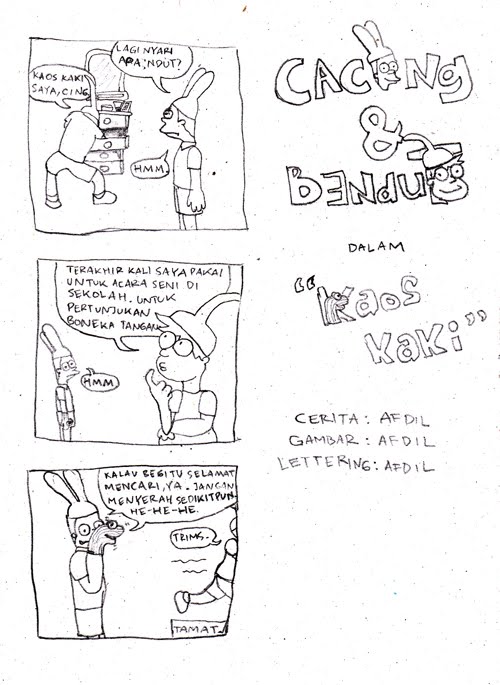 LAGI NYARI
APA, NDUT?
KAOS KAKI
SAYA, CING.
HMM.
TERAKHIR KALI SAYA PAKAI
UNTUK ACARA SENI DI
SEKOLAH. UNTUK
PERTUNJUKAN
BONEKA TANGAN.
HMM.
KALAU BEGITU SELAMAT
MENCARI, YA. JANGAN
MENYERAH SEDIKITPUN.
HE-HE-HE.
TRIMS.
TAMAT.
CACING
&
BENDUL
DALAM
"KAOS
KAKI"
CERITA: AFDIL
GAMBAR: AFDIL
LETTERING: AFDIL